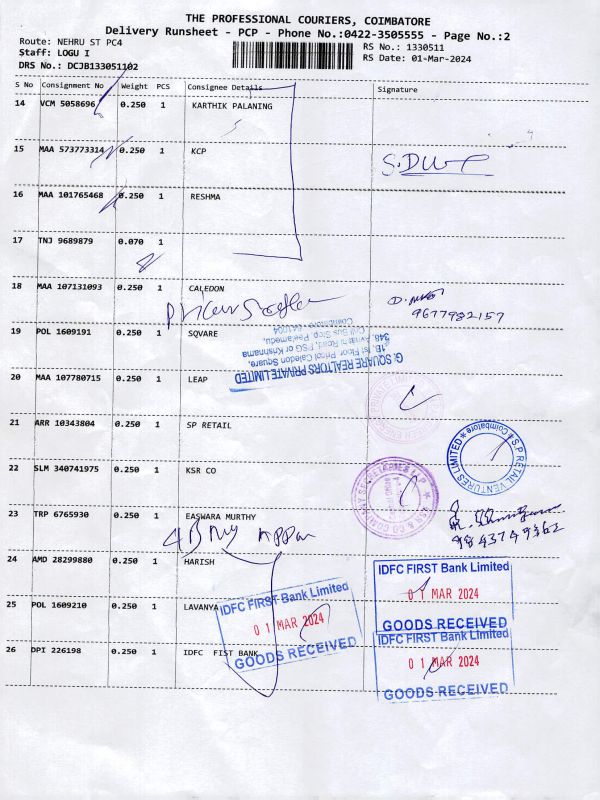 THE PROFESSIONAL COURIERS, COIMBATORE
Delivery Runsheet - PCP - Phone No.:0422-3505555 - Page No.:2
Route: NEHRU ST PC4
Staff: LOGU I
DRS No.: DCJB133051102
RS No.: 1330511
RS Date: 01-Mar-2024
S No Consignment No Weight PCS Consignee Details Signature
14 VCM 5058696 0.250 1 KARTHIK PALANING
15 MAA 573773314 0.250 1 KCP
16 MAA 101765468 0.250 1 RESHMA
17 TNJ 9689879 0.070 1
18 MAA 107131093 0.250 1 CALEDON
9677982157
19 POL 1609191 0.250 1 SQVARE
G SQUARE REALTORS PRIVATE LIMITED
20 MAA 107780715 0.250 1 LEAP
21 ARR 10343804 0.250 1 SP RETAIL
S.P RETAIL VENTURES LIMITED
Coimbatore
22 SLM 340741975 0.250 1 KSR CO
23 TRP 6765930 0.250 1 EASWARA MURTHY
9843749362
24 AMD 28299880 0.250 1 HARISH
IDFC FIRST Bank Limited
01 MAR 2024
GOODS RECEIVED
25 POL 1609210 0.250 1 LAVANYA
IDFC FIRST Bank Limited
01 MAR 2024
GOODS RECEIVED
26 DPI 226198 0.250 1 IDFC FIST BANK
IDFC FIRST Bank Limited
01 MAR 2024
GOODS RECEIVED